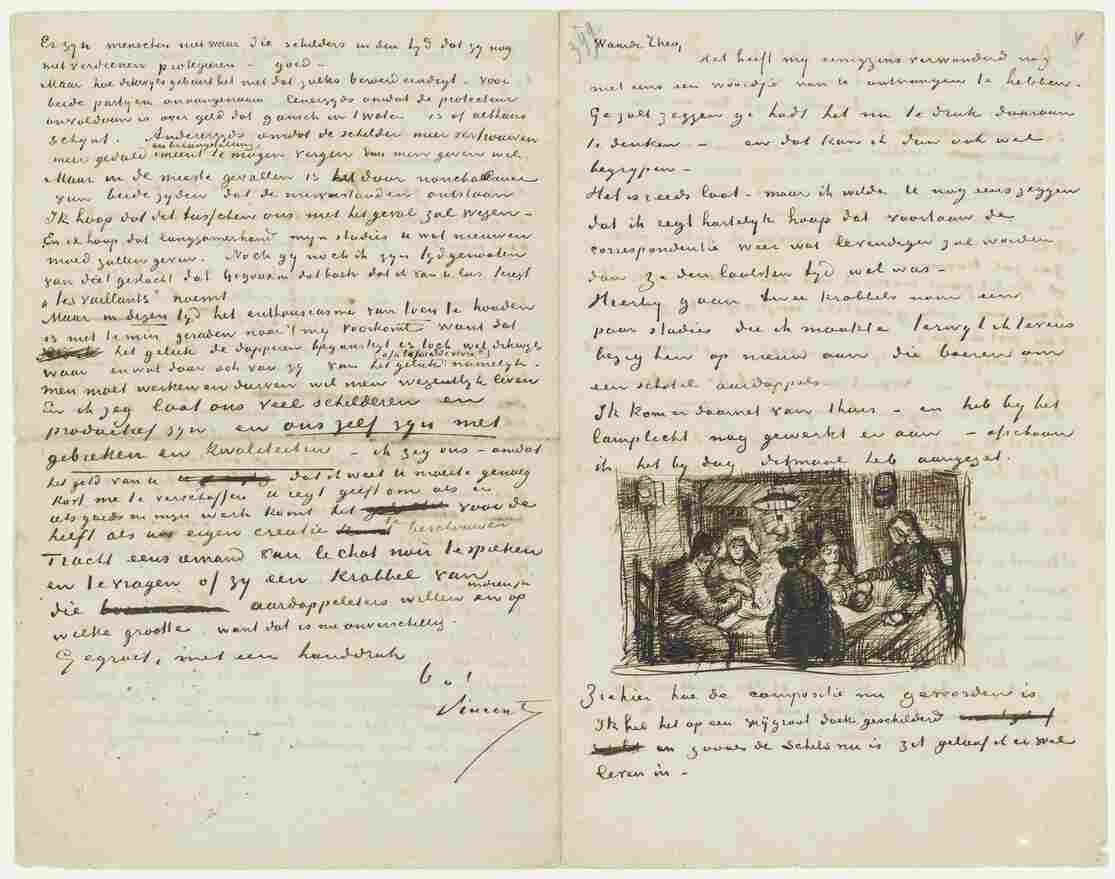 Er zijn menschen nietwaar die schilders in den tijd dat zij nog
niet verdienen protegeeren – goed –
Maar hoe dikwijls gebeurt het niet dat zulks beroerd eindigt – voor
beide partijen onaangenaam eenerzijds omdat de protecteur
onvoldaan is over geld dat gansch in 't water is of althans
schijnt. Anderzijds omdat de schilder meer vertrouwen
meer geduld en belangstelling meent te mogen vergen dan men geven wil
Maar in de meeste gevallen is het door nonchalance
van beide zijden dat de misverstanden ontstaan
Ik hoop dat dit tusschen ons niet het geval zal wezen –
En ik hoop dat langzamerhand mijn studies u wat nieuwen
moed zullen geven. Noch gij noch ik zijn tijdgenooten
van dat geslacht dat Gigoux in dat boek dat ik van u las, teregt
„les vaillants" noemt
Maar in dezen tijd het enthousiasme van toen te houden
is niettemin geraden naar 't mij voorkomt want dat
het geluk de dapperen begunstigt is toch wel dikwijls
waar en wat daar ook van zij van het geluk (of la joie de vivre?) namelijk.
men moet werken en durven wil men wezentlijk leven
En ik zeg laat ons veel schilderen en
productief zijn en ons zelf zijn met
gebreken en kwaliteiten – ik zeg ons – omdat
het geld van u dat ik weet u moeite genoeg
kost me te verschaffen u regt geeft om als er
iets goeds in mijn werk komt het voor de
helft als uw eigen creatie te beschouwen
Tracht eens iemand van le chat noir te spreken
en te vragen of zij een krabbel van
die aardappeleters willen en indien ja op
welke grootte want dat is me onverschillig.
Gegroet, met een handdruk
b. à t.
Vincent
Waarde Theo,
Het heeft mij eenigzins verwonderd nog
niet eens een woordje van U ontvangen te hebben.
Ge zult zeggen ge hadt het nu te druk daaraan
te denken – en dat kan ik dan ook wel
begrijpen –
Het is reeds laat – maar ik wilde U nog eens zeggen
dat ik regt hartelijk hoop dat voortaan de
correspondentie weer wat levendiger zal worden
dan ze den laatsten tijd wel was –
Hierbij gaan twee krabbels naar een
paar studies die ik maakte terwijl ik tevens
bezig ben op nieuw aan die boeren om
een schotel aardappels –
Ik kom er daarnet van thuis – en heb bij het
lamplicht nog gewerkt er aan – ofschoon
ik het bij dag ditmaal heb aangezet.
Ziehier hoe de compositie nu geworden is
Ik heb het op een vrij groot doek geschilderd
en zooals de schets nu is zit geloof ik er wel
leven in –